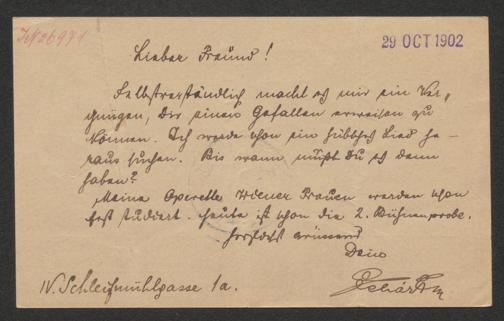 IN 26971
29 OCT 1902
Lieber Freund!
Selbstverständlich macht es mir ein Ver-
gnügen, Dir einen Gefallen erweisen zu
können. Ich werde schon ein hübsches Lied he-
raus suchen. Bis wann mußt Du es denn
haben?
Meine Operette Wiener Frauen werden schon
fest studiert. Heute ist schon die 2. Bühnenprobe.
Herzlichst grüssend
Dein
Lehár
IV. Schleifmühlgasse 1a.